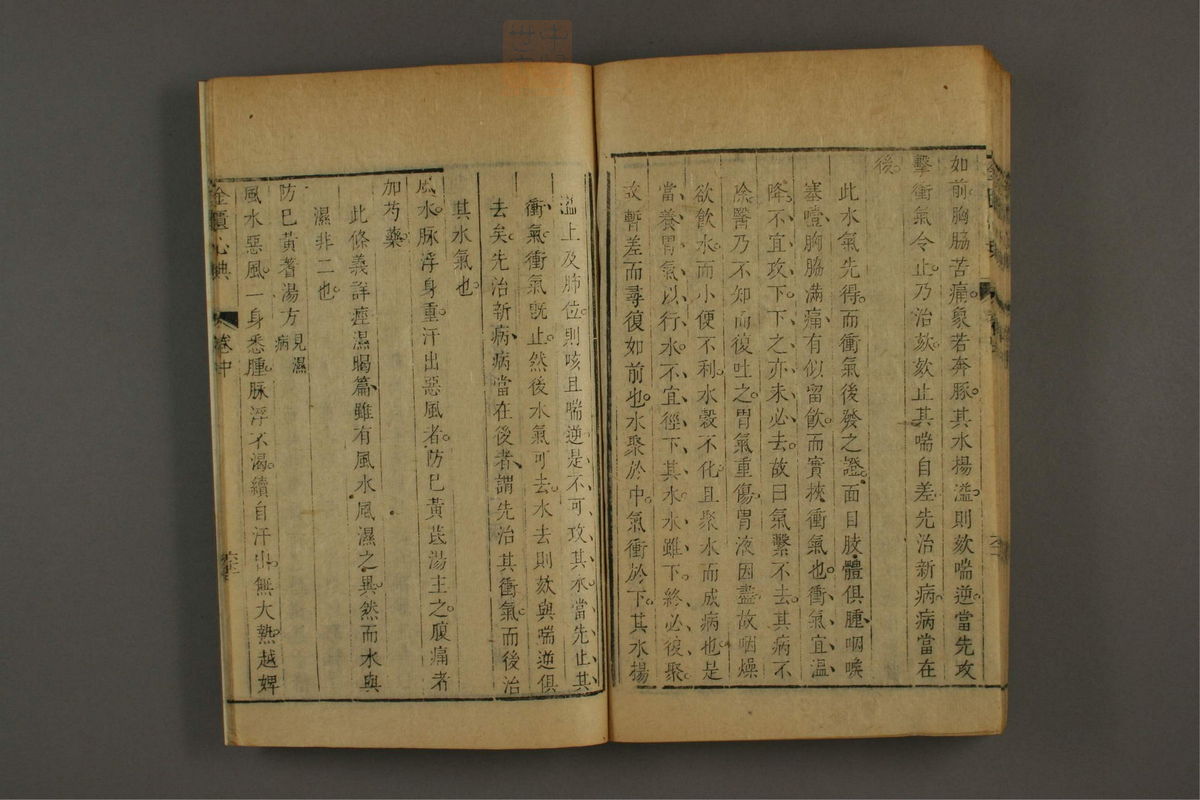 如前胸脇苦痛象若奔豚其水揚溢則欬喘逆當先攻
擊衝氣令止乃治欬欬止其喘自差先治新病病當在
後
此水氣先得而衝氣後發之證面目肢體俱腫咽喉
塞噎胸脇滿痛有似留飲而實挾衝氣也衝氣宜溫
降不宜攻下下之亦未必去故曰氣繫不去其病不
除醫乃不知而復吐之胃氣重傷胃液因盡故咽燥
欲飲水而小便不利水穀不化且聚水而成病也是
當養胃氣以行水不宜徑下其水水雖下終必復聚
故暫差而尋復如前也水聚於中氣衝於下其水揚
溢上及肺位則咳且喘逆是不可攻其水當先止其
衝氣衝氣既止然後水氣可去水去則欬與喘逆俱
去矣先治新病病當在後者謂先治其衝氣而後治
其水氣也
風水脉浮身重汗出惡風者防巳黃芪湯主之腹痛者
加芍藥
此條義詳痙濕暍篇雖有風水風濕之異然而水與
濕非二也
防巳黃蓍湯方見濕病
風水惡風一身悉腫脉浮不渴續自汗出無大熱越婢
金匱心典
卷中